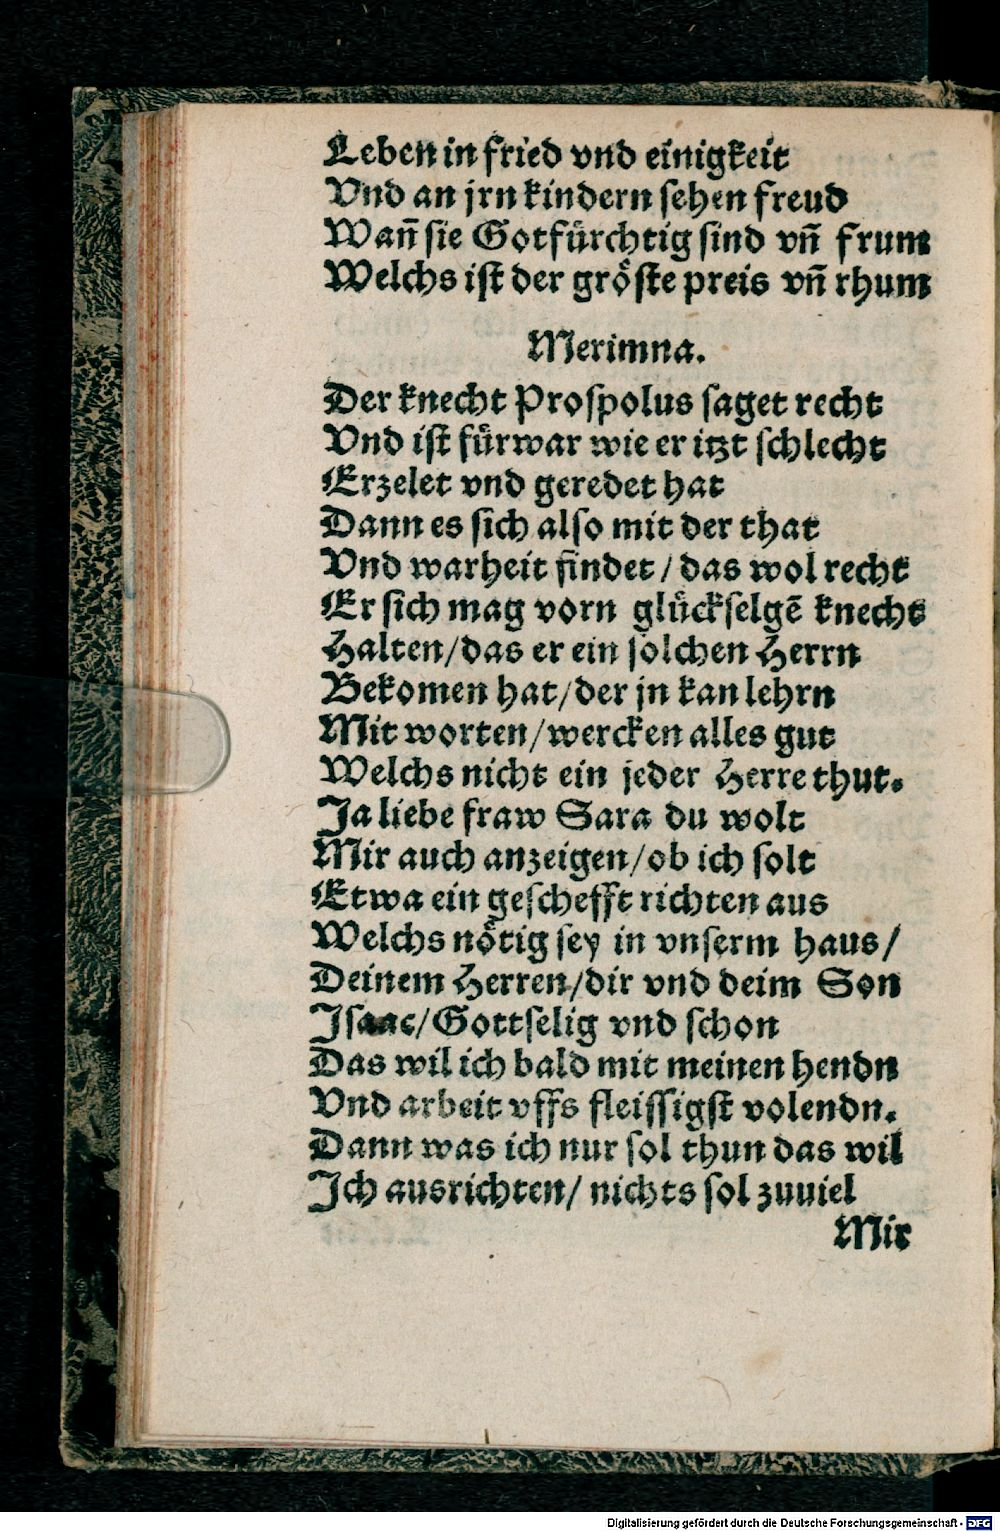 Leben in fried vnd einigkeit
Vnd an jrn kindern sehen freud
Wañ sie Gotfürchtig sind vñ frum
Welchs ist der gröste preis vñ rhum
Merimna.
Der knecht Prospolus saget recht
Vnd ist fürwar wie er itzt schlecht
Erzelet vnd geredet hat
Dann es sich also mit der that
Vnd warheit findet / das wol recht
Er sich mag vorn glückselgē knecht
Halten/das er ein solchen Herrn
Bekomen hat/der jn kan lehrn
Mit worten/wercken alles gut
Welchs nicht ein jeder Herre thut.
Ja liebe fraw Sara du wolt
Mir auch anzeigen/ob ich solt
Etwa ein geschefft richten aus
Welchs nötig sey in vnserm haus/
Deinem Herren/dir vnd deim Son
Isaac/Gottselig vnd schon
Das wil ich bald mit meinen hendn
Vnd arbeit vffs fleissigst volendn.
Dann was ich nur sol thun das wil
Ich ausrichten/ nichts sol zuuiel
Mir
Digitalisierung gefördert durch die Deutsche Forschungsgemeinschaft - DFG